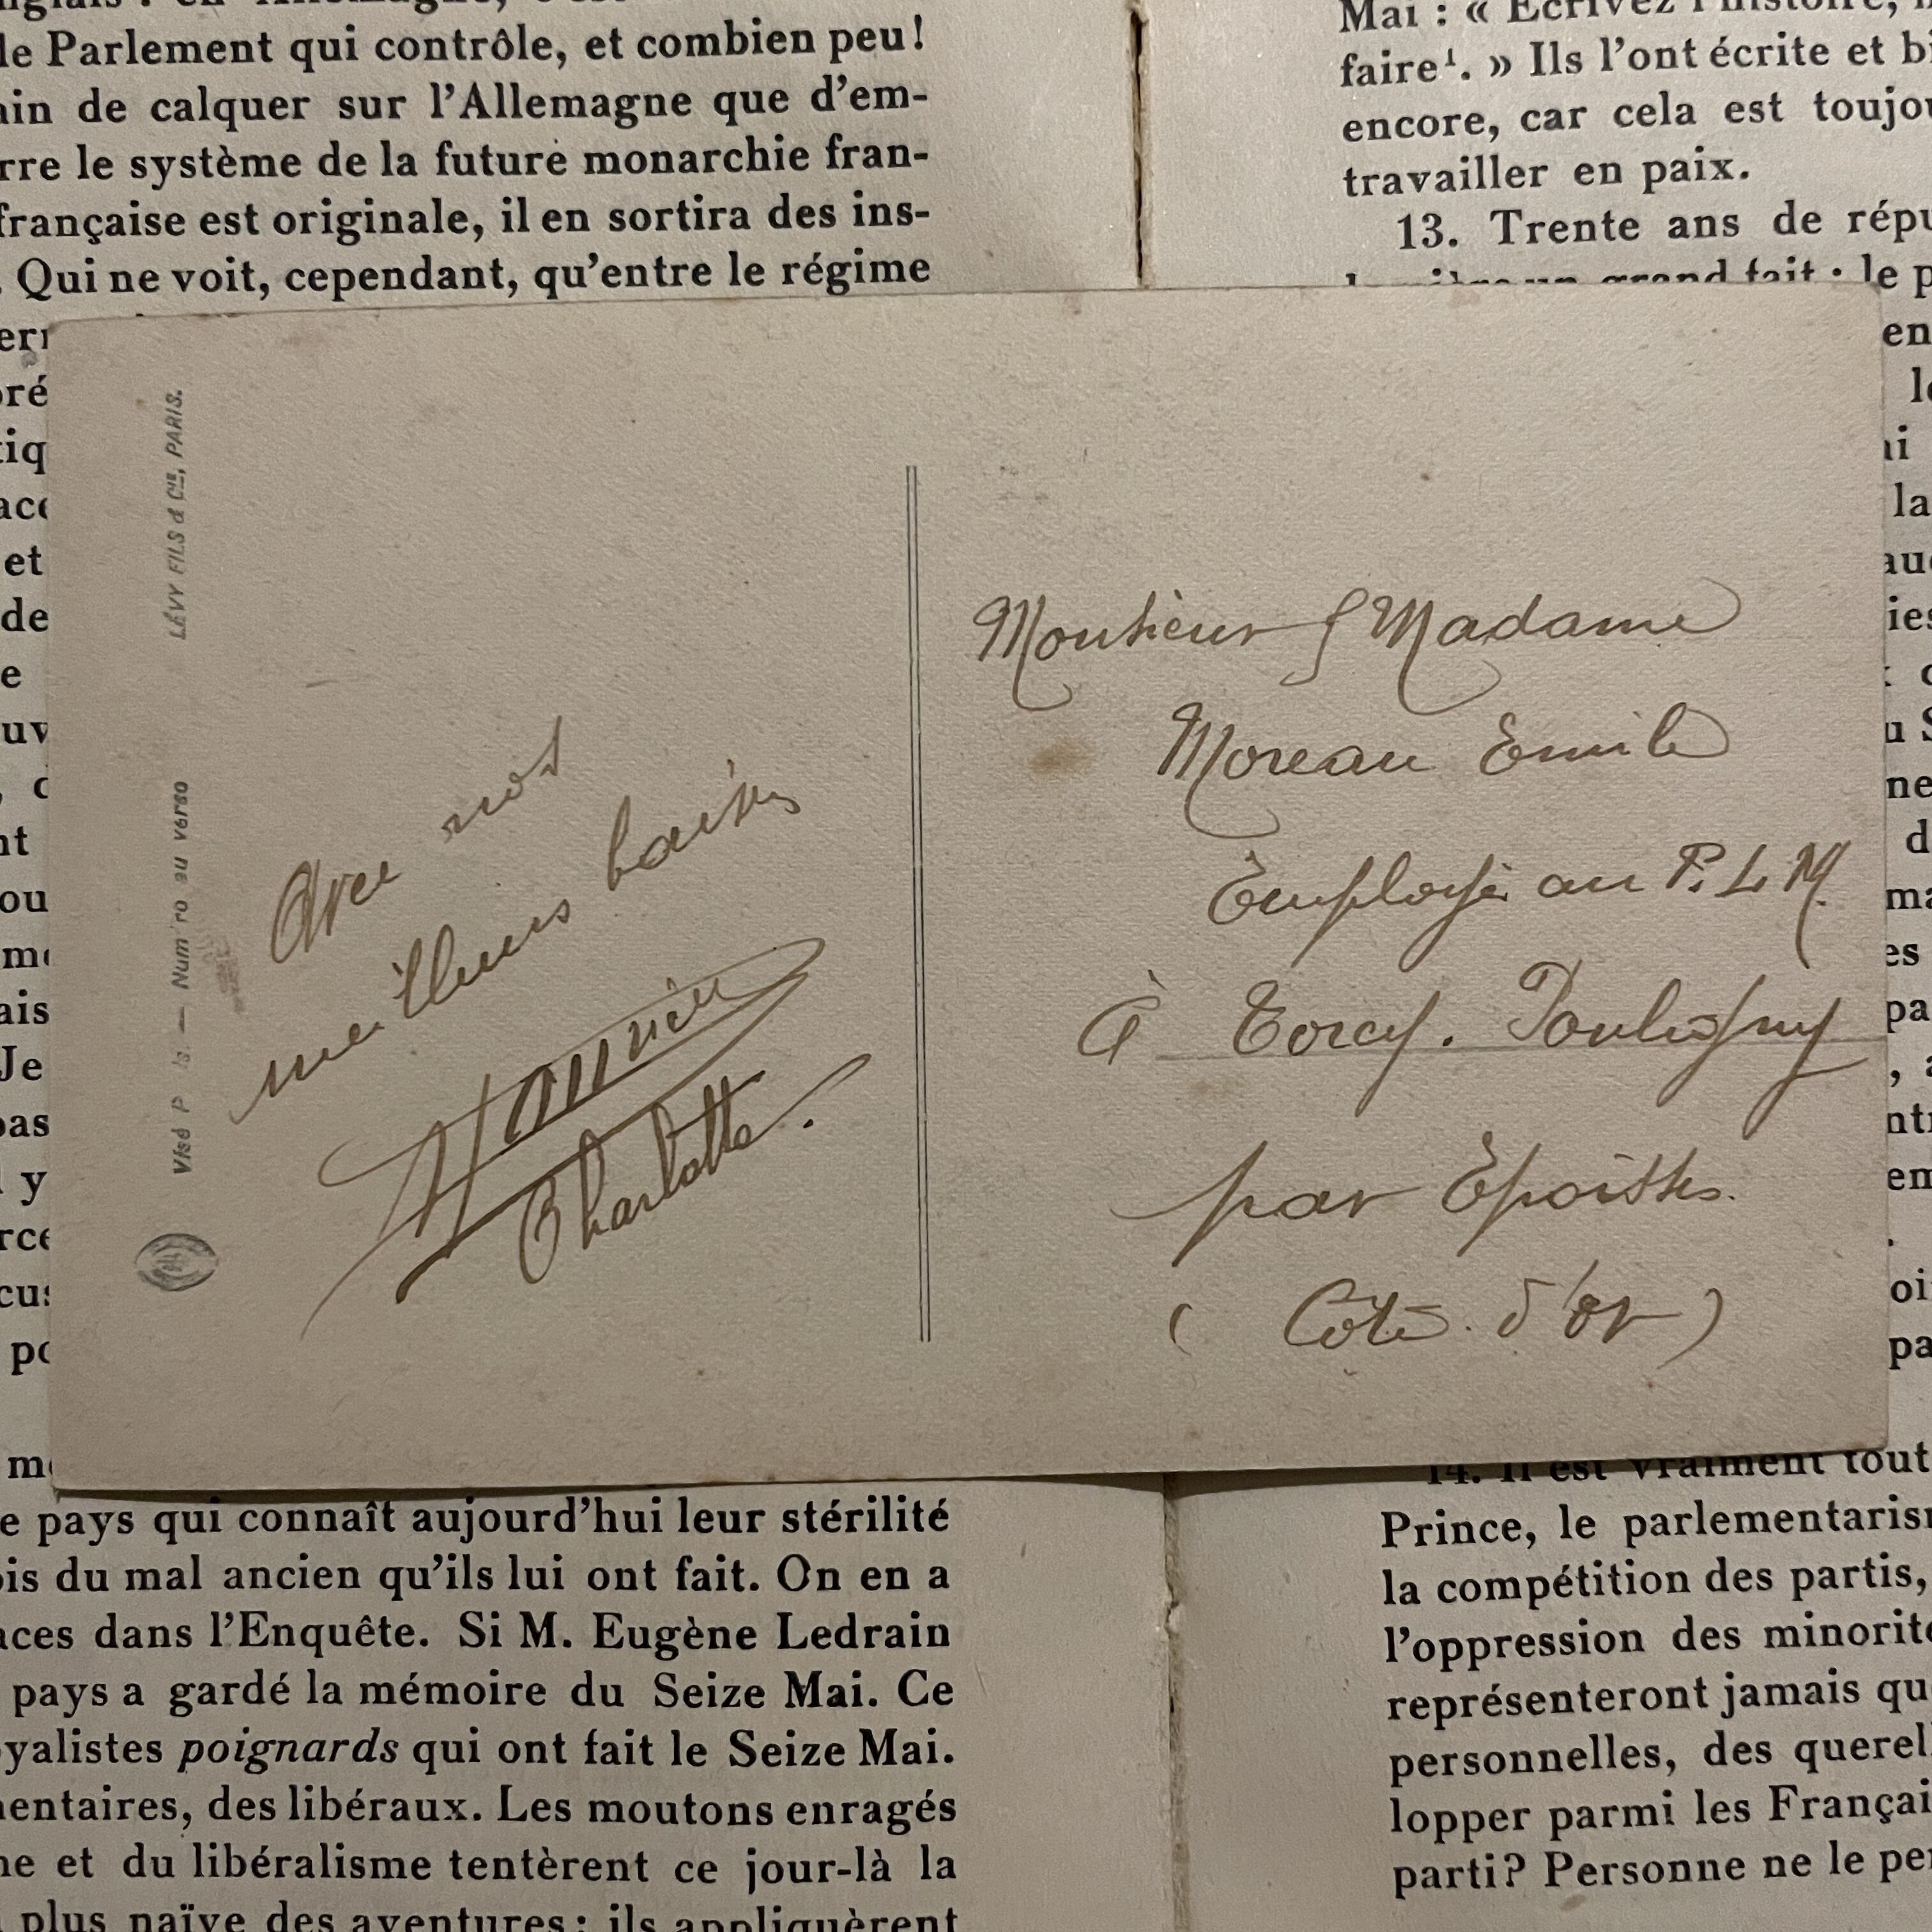 le Parlement qui contrôle, et combien peu!
ain de calquer sur l'Allemagne que d'em-
rre le système de la future monarchie fran-
française est originale, il en sortira des ins-
. Qui ne voit, cependant, qu'entre le régime
Mai : « Écrivez l'histoire,
faire¹. » Ils l'ont écrite et bi
encore, car cela est toujou
travailler en paix.
13. Trente ans de répu
grand fait : le p
LÉVY FILS & Cie, PARIS.
Visé P is. — Num ro au verso
Avec nos
meilleurs baisers
Charlotte.
Monsieur & Madame
Moreau Emile
Employé au P. L. M.
à Torcy. Pouligny
par Epoisses.
( Côte. d'or )
14. Il est vraiment tout
e pays qui connaît aujourd'hui leur stérilité
ois du mal ancien qu'ils lui ont fait. On en a
aces dans l'Enquête. Si M. Eugène Ledrain
pays a gardé la mémoire du Seize Mai. Ce
yalistes poignards qui ont fait le Seize Mai.
entaires, des libéraux. Les moutons enragés
ne et du libéralisme tentèrent ce jour-là la
plus naïve des aventures : ils appliquèrent
Prince, le parlementaris
la compétition des partis,
l'oppression des minorité
représenteront jamais qu
personnelles, des querel
lopper parmi les Françai
parti? Personne ne le pe